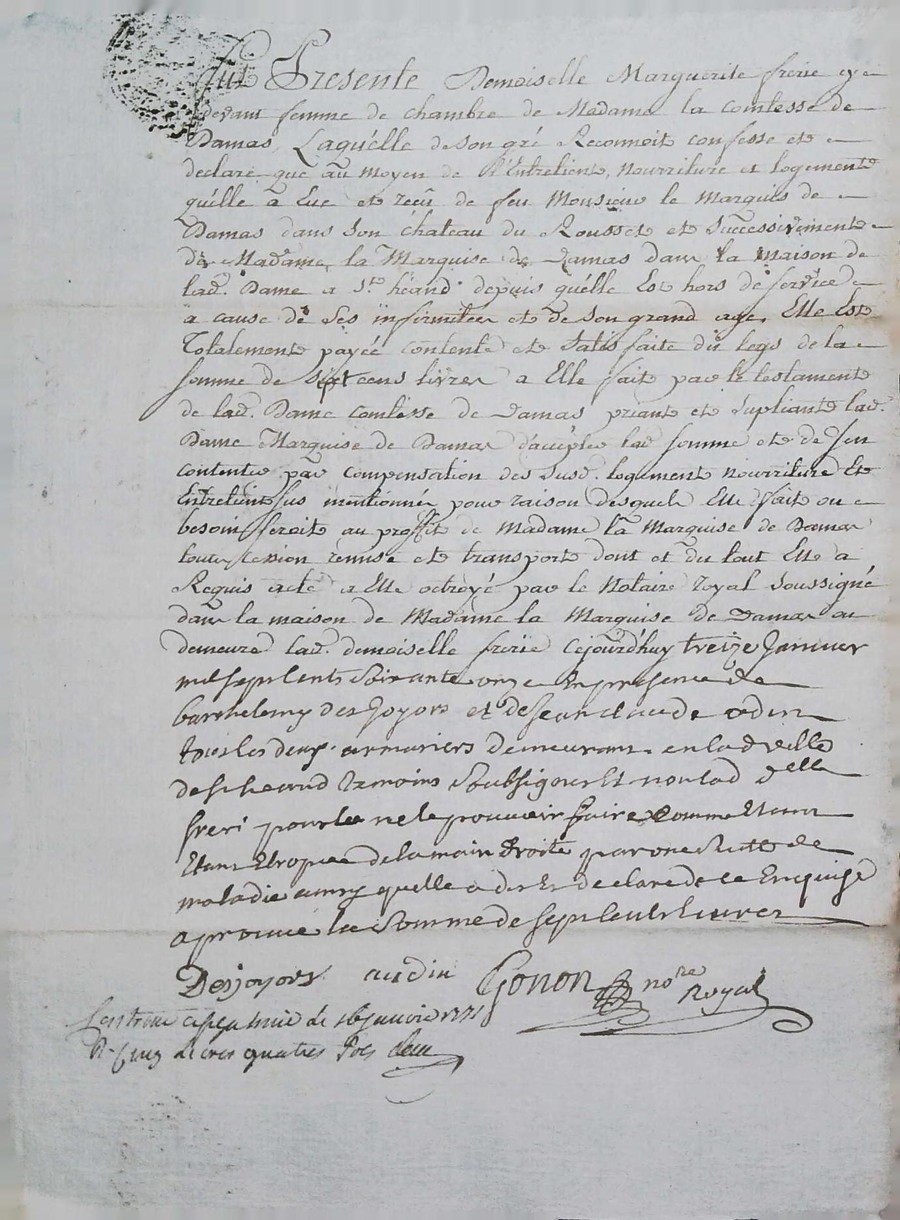 fut Presente Demoiselle Marguerite frerie cy
devant femme de chambre de Madame la comtesse de
Damas, Laquélle de son gré Reconnoit confesse et
declare que au moyen de l'Entretient, nourriture et logement
quélle a Eue et recû de feu Monsieur le Marquis de
Damas dans son chateau du Rousset et successivement
de Madame la Marquise de Damas dans la maison de
lad. Dame a St. héand depuis quélle Est hors de service
a cause de ses infirmitée et de son grand age, Elle Est
Totalement payée contente et satisfaite du legs de la
somme de sept cens livres a Elle fait par le testament
de lad. Dame comtesse de Damas priant et supliant lad.
Dame Marquise de Damas d'accepter lad somme et de s'en
contenter par compensation des susd. logement nourriture Et
Entretient sus mentionnée pour raison desquels Elle fait ou
besoin seroit au proffit de Madame la Marquise de Damas
toute cession remise et transport dont et du tout Elle a
Requis acte a Elle octroyé par le Notaire royal soussigné
dans la maison de Madame la Marquise de Damas ou
demeure lad. demoiselle frerie Cejourd'huy treize janvier
mil sept cents soixante onze En presence de
barthelemy des Joyors et de jean claude odin
tous les deux armuriers demeurant en lad ville
de st heand temoins soubsignes Et non lad delle
freri pour ne le pouvoir faire comme Etant
Etant Etropiée de la main droite par une suitte de
maladie ainsy quelle a dit Et declaré de ce Enquise
aprouvé la somme de sept cents livres
Desjoyors audin Gonon nore
Royal
Controlé a st heand le 16 janvier 1771
R. cinq livres quatres sols